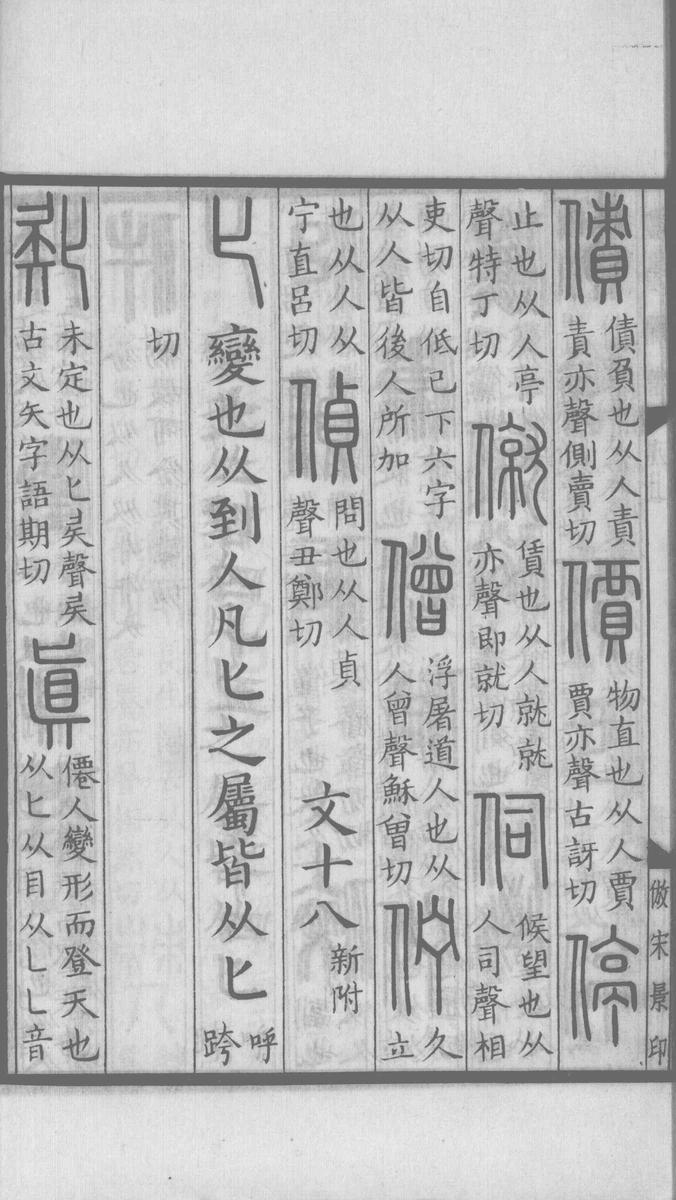 倣宋景印
債債負也从人責責亦聲側賣切價物直也从人賈賈亦聲古訝切停
止也从人亭聲特丁切僦賃也从人就就亦聲即就切伺候望也从人司聲相
吏切自低已下六字从人皆後人所加僧浮屠道人也从人曾聲穌曾切佇久立
也从人从宁直呂切偵問也从人貞聲丑鄭切文十八新附
匕變也从到人凡匕之屬皆从匕呼跨
切
𠤕未定也从匕𠤗聲𠤗古文矢字語期切眞僊人變形而登天也从匕从目从乚乚音